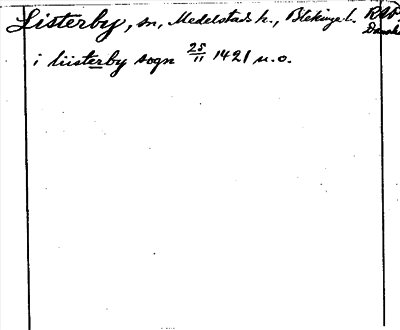 Listerby, sn, Medelstads h., Blekinge l. RAP.
Danska
i liisterby sogn 25/11 1421 u. o.